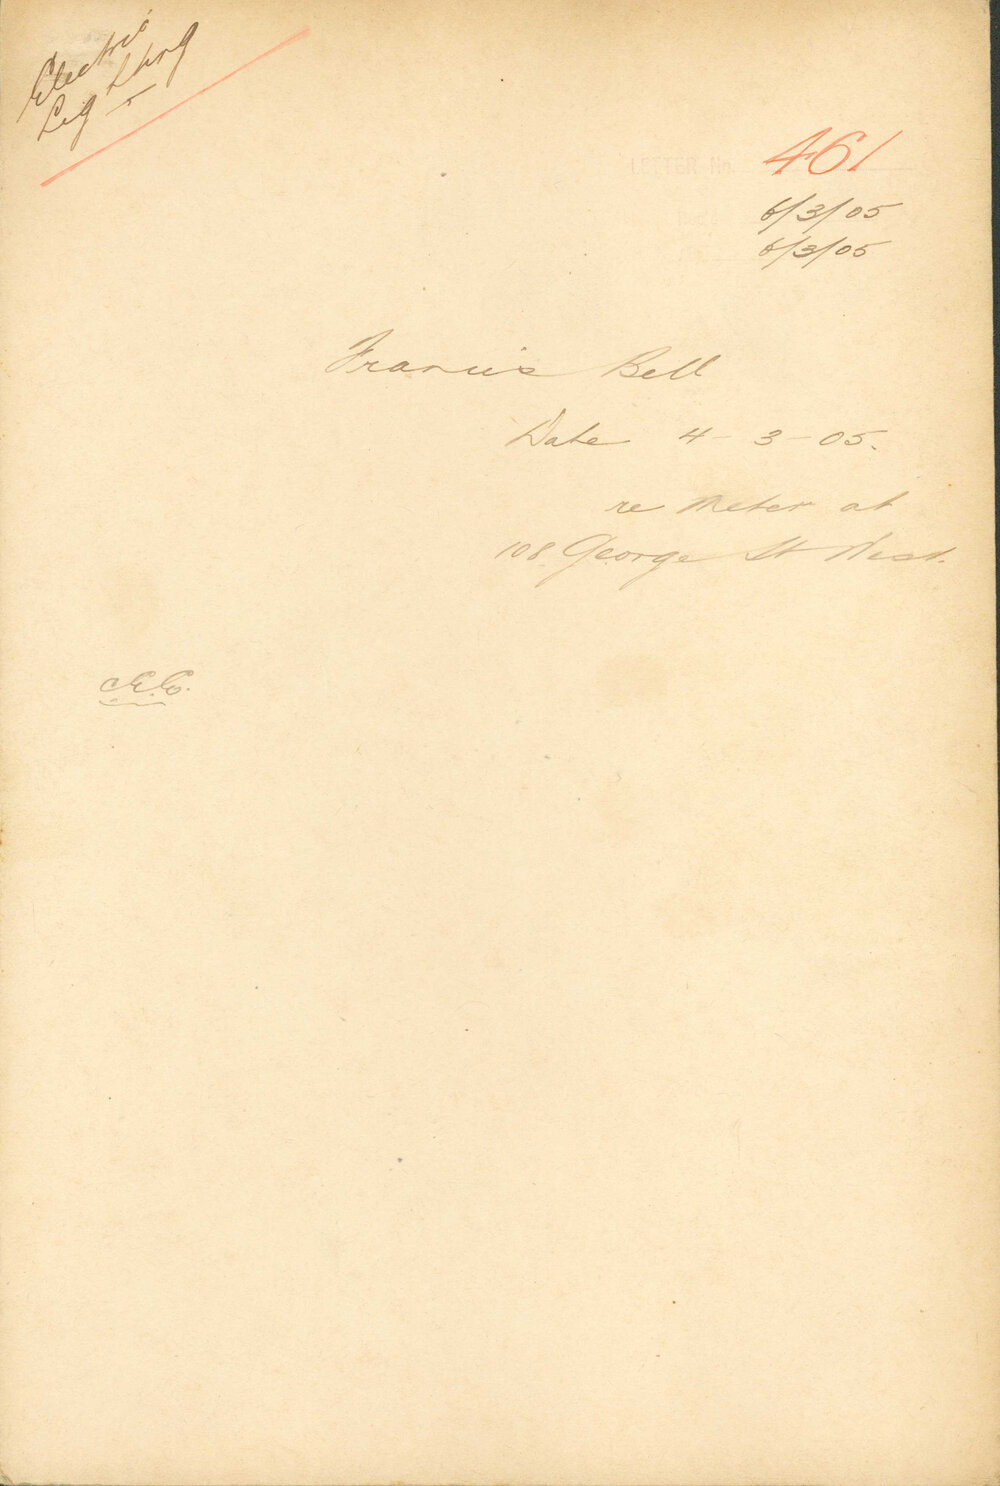 Electric
Lighting
LETTER No. 461
6/3/05
6/3/05
Francis Bell
Date 4-3-05.
re Meter at
108 George St West.